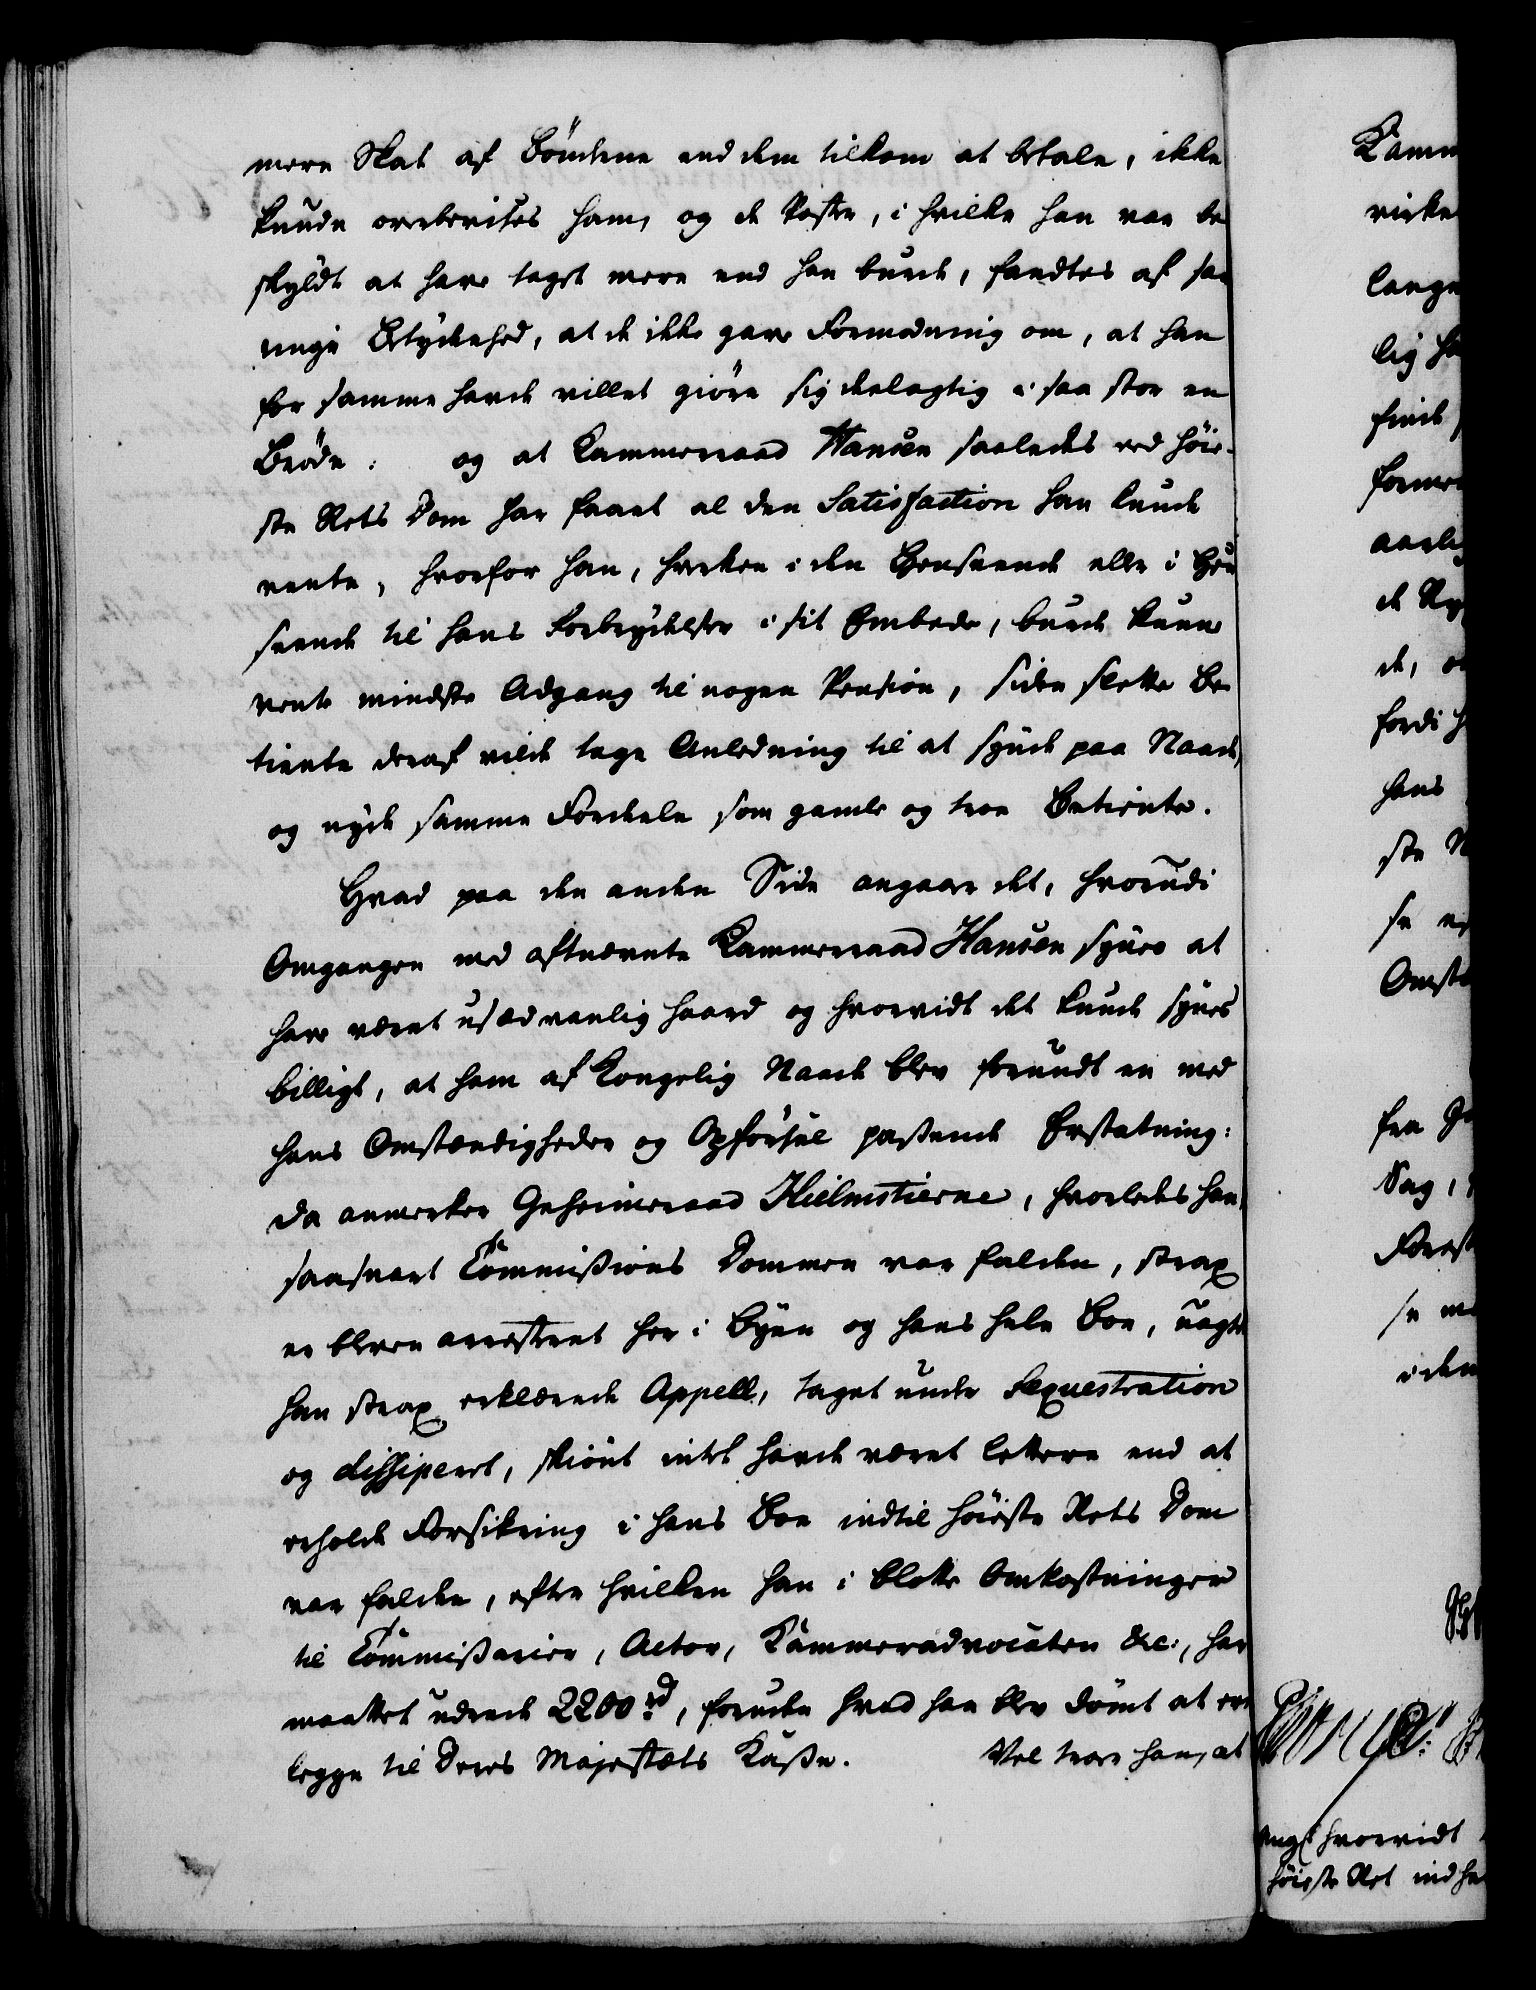 mere Skat af Bønderne end dem tilkom at betale, ikke
kunde overbevises ham, og de Poster, i hvilke han var be
skyldt at have taget mere end han burde, fandtes af saa
ringe Betydenhed, at de ikke gave Formodning om, at han
for samme havde villet giøre sig deelagtig i saa stor en
Brøde: og at Kammerraad Hansen saaledes ved Høie-
ste Rets Dom har faaet al den Satisfaction han kunde
vente, hvorfor han, hverken i den Henseende eller i Hen
seende til hans Forbrydelser i sit Embede, burde kunne
vente mindste Adgang til nogen Pension, siden slette Be
tiente deraf vilde tage Anledning til at synde paa Naade,
og nyde samme Fordeele som gamle og troe Betiente.
Hvad paa den anden Side angaaer det, hvorudi
Omgangen med oftnævnte Kammerraad Hansen synes at
have været usædvanlig haard og hvorvidt det kunde synes
billigt, at ham af Kongelig Naade blev forundt en med
hans Omstændigheder og Opførsel passende Erstatning:
da anmerker Geheimeraad Hielmstierne, hvorledes han,
saasnart Commissions Dommen var falden, strax
er bleven arresteret her i Byen og hans hele Boe, uagtet
han strax erklærede Appell, taget under Sequestration
og dissiperet, skiønt intet havde været lettere end at
erholde Forsikring i hans Boe indtil Høieste Rets Dom
var falden, efter hvilken han i blotte Omkostninger
til Commissarier, Actor, Kammeradvocaten &c:, har
maattet udrede 2200 rd, foruden hvad han blev dømt at er
legge til Deres Majestæts Kasse. Vel troer han, at